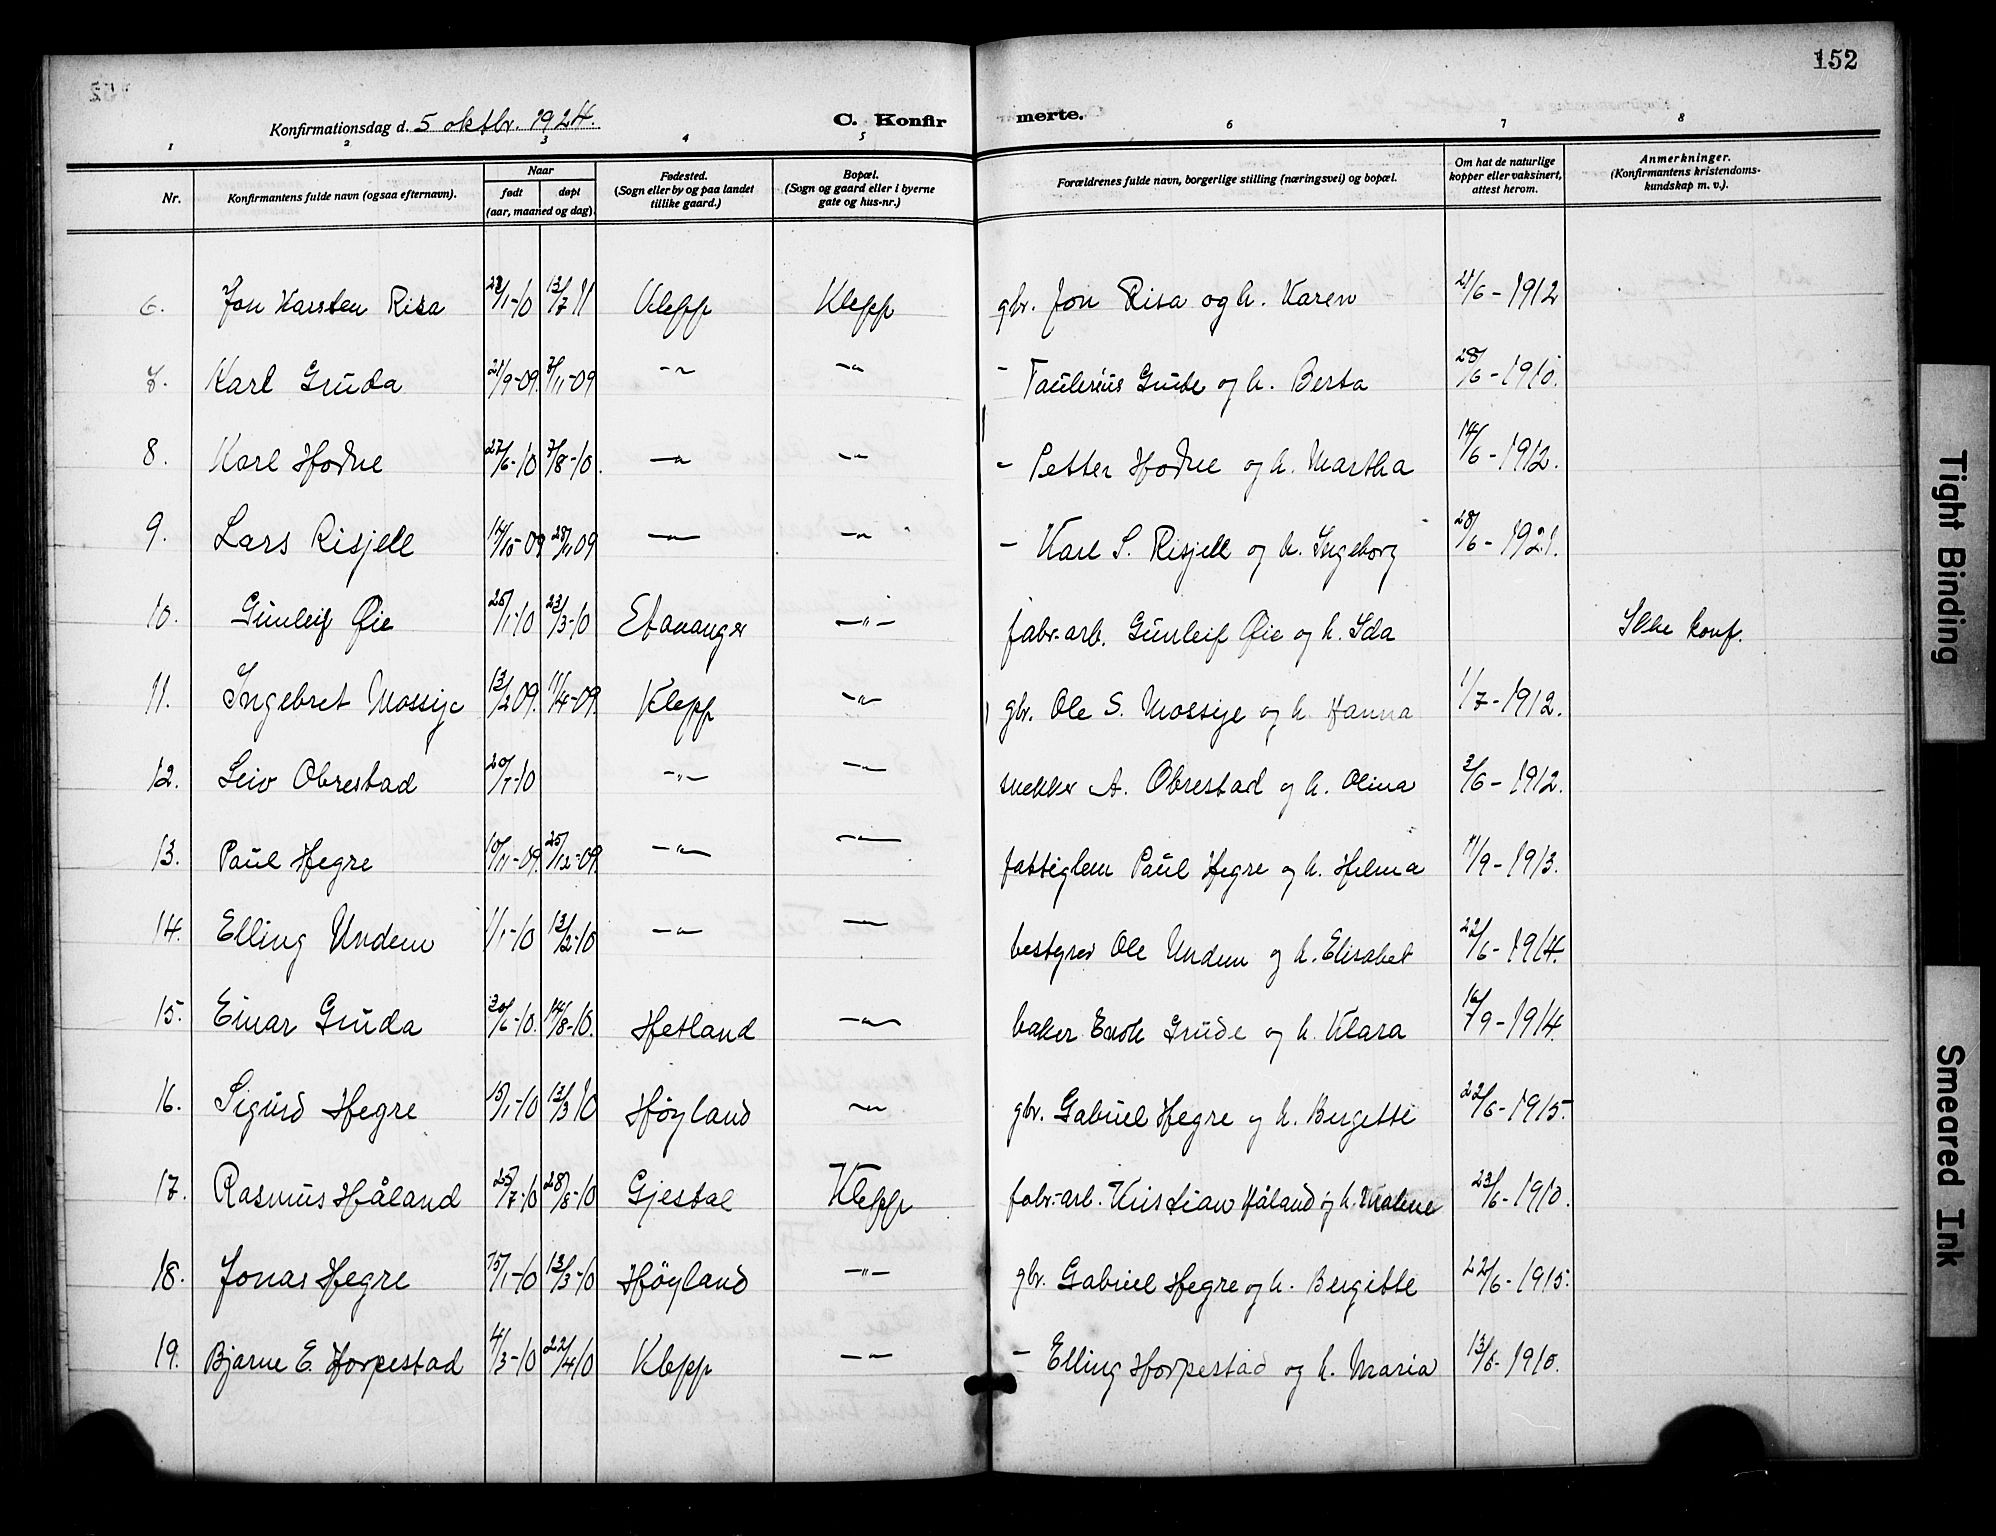 152
Konfirmationsdag d. 5 oktbr. 1924. C. Konfirmerte.
1 2 3 4 5 6 7 8
Nr. Konfirmantens fulde navn (ogsaa efternavn). Naar født døpt (aar, maaned og dag). Fødested. (Sogn eller by og paa landet tillike gaard.) Bopæl. (Sogn og gaard eller i byerne gate og hus-nr.) Forældrenes fulde navn, borgerlige stilling (næringsvei) og bopæl. Om hat de naturlige kopper eller vaksinert, attest herom. Anmerkninger. (Konfirmantens kristendoms-kundskap m. v.).
6. Jon Karsten Risa 28/1-10 13/7 11 Klepp Klepp gbr. Jon Risa og h. Karen 21/6-1912
7. Karl Gruda 21/9-09. 7/11-09 -"- -"- - Gude og h. Berta 28/6-1910.
8. Karl Hodne 27/6-10 7/8-10. -"- -"- - Petter Hodne og h. Martha 14/6-1912.
9. Lars Risjell 14/10-09 28/11 09 -"- -"- - Karl S. Risjell og h. Ingeborg 28/6-1921.
10. Gunleif Øie 25/1-10 23/3-10 Stavanger -"- fabr.-arb. Gunleif Øie og h. Ida Ikke konf.
11. Ingebret Mossige 13/2 09. 11/4-09. Klepp -"- gbr. Ole S. Mossige og h. Hanna 1/7-1912.
12. Leiv Obrestad 20/7-10 -"- -"- snekker A. Obrestad og h. Olina 3/6-1912.
13. Paul Hegre 10/11-09. 25/12-09. -"- -"- fattiglem Paul Hegre og h. Helma 11/9-1913.
14. Elling Undem 1/1-10 13/2-10 -"- -"- bestyrer Ole Undem og h. Elisabet 22/6-1914.
15. Einar Gruda 30/6-10. 14/8-10. Hetland -"- baker Enok Grude og h. Klara 16/9-1914.
16. Sigurd Hegre 15/1-10 13/3 10 Høyland -"- gbr. Gabriel Hegre og h. Bergette 22/6-1915.
17. Rasmus Håland 25/7-10 28/8-10 Gjestal Klepp fabr.-arb. Kristian Håland og h. Malene 23/6-1910.
18. Jonas Hegre 15/1-10 13/3-10 Høyland -"- gbr. Gabriel Hegre og h. Bergitte 22/6-1915.
19. Bjarne E. Horpestad 4/3-10 22/4 10 Klepp -"- - Elling Horpestad og h. Maria 13/6-1910.
Tight Binding
Smeared Ink